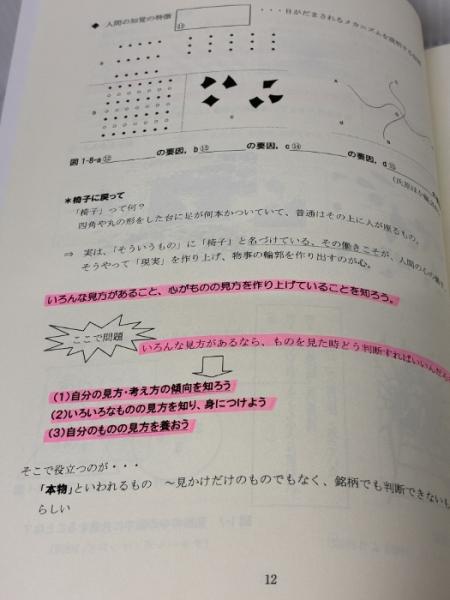 ◆ 人間の知覚の特徴 ⑪ ・・・目がだまされるメカニズムを説明する
図1-8-a⑫ の要因, b⑬ の要因, c⑭ の要因, d⑮
*椅子に戻って
「椅子」って何？
四角や丸の形をした台に足が何本かついていて、普通はその上に人が座るもの。
⇒ 実は、「そういうもの」に「椅子」と名づけている、その働きこそが、人間の心の働き。
そうやって「現実」を作り上げ、物事の輪郭を作り出すのが心。
いろんな見方があること、心がものの見方を作り上げていることを知ろう。
ここで問題
いろんな見方があるなら、ものを見た時どう判断すればいいんだ
(1)自分の見方・考え方の傾向を知ろう
(2)いろいろなものの見方を知り、身につけよう
(3)自分のものの見方を養おう
そこで役立つのが・・・
「本物」といわれるもの ～見かけだけのものでもなく、銘柄でも判断できないも
らしい
12